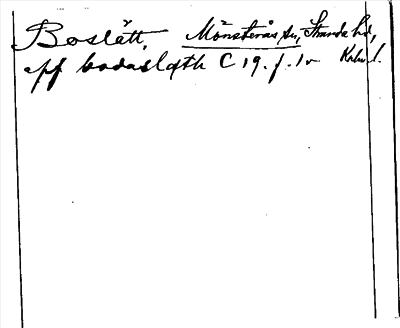 Boslätt, Mönsterås sn, Stranda hd,
uff bodaslæth C 19. f. 1v Kalm. l.